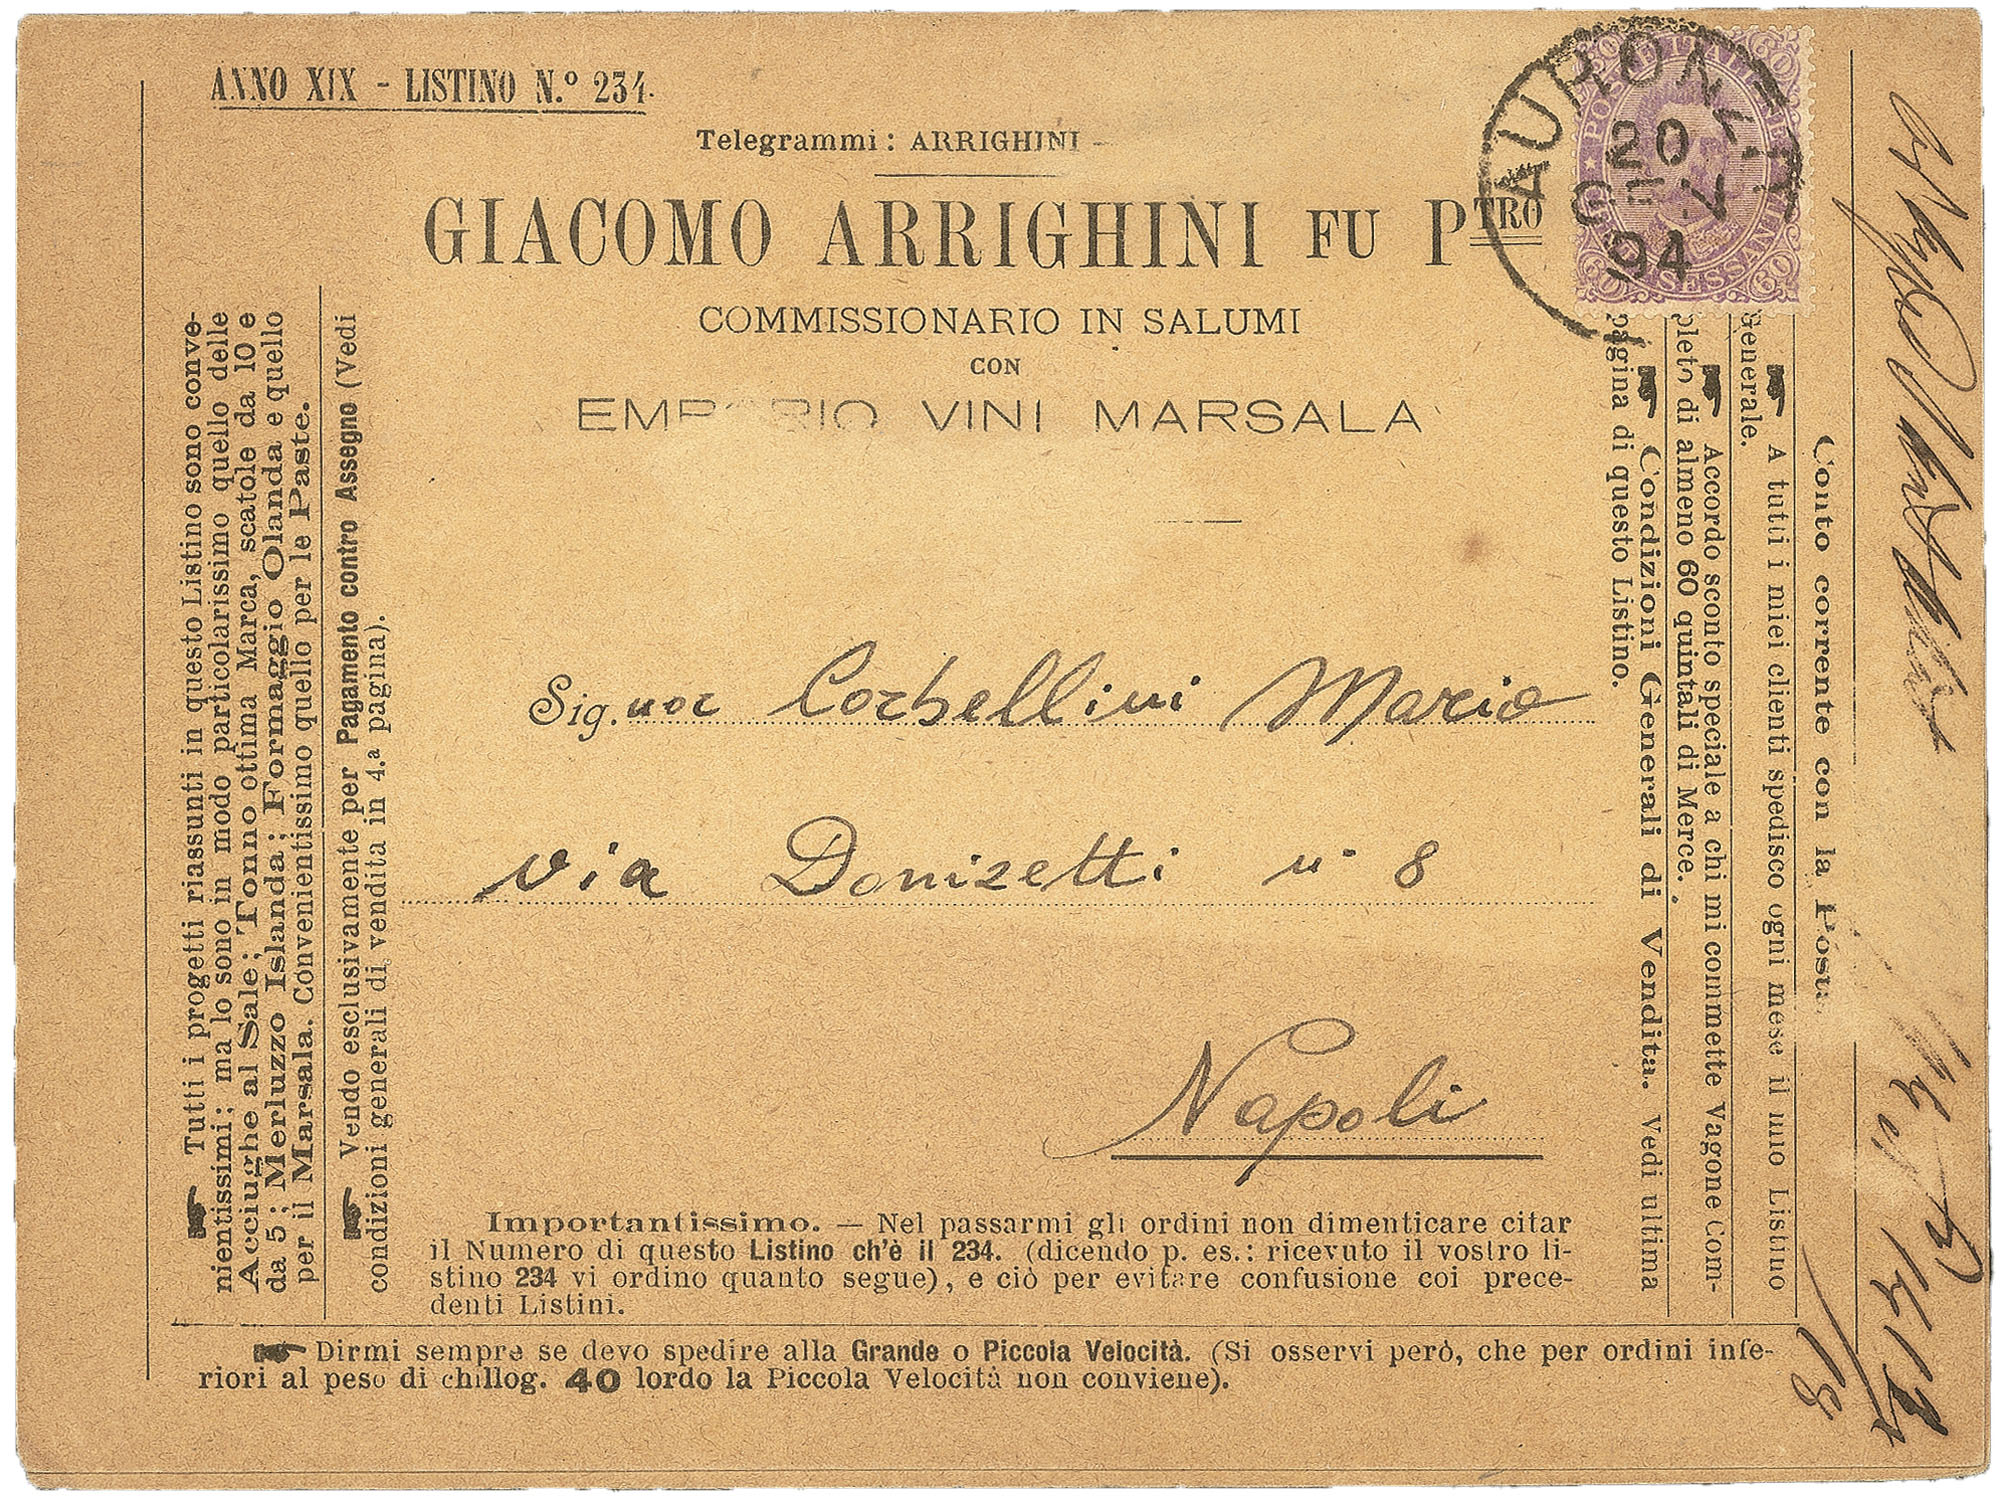 ANNO XIX - LISTINO N.º 234.
Telegrammi: ARRIGHINI -
GIACOMO ARRIGHINI FU PTRO
COMMISSIONARIO IN SALUMI
CON
EMPORIO VINI MARSALA
AURONZO
20
GEN
94
POSTE ITALIANE
SESSANTA
60 60
60 60
Sig.nor Corbellini Mario
via Donizetti n. 8
Napoli
Tutti i progetti riassunti in questo Listino sono conve-
nientissimi; ma lo sono in modo particolarissimo quello delle
Acciughe al Sale; Tonno ottima Marca, scatole da 10 e
da 5; Merluzzo Islanda; Formaggio Olanda e quello
per il Marsala. Convenientissimo quello per le Paste.
Vendo esclusivamente per Pagamento contro Assegno (Vedi
condizioni generali di vendita in 4.ª pagina).
Conto corrente con la Posta
A tutti i miei clienti spedisco ogni mese il mio Listino
Generale.
Accordo sconto speciale a chi mi commette Vagone Com-
pleto di almeno 60 quintali di Merce.
Condizioni Generali di Vendita. Vedi ultima
pagina di questo Listino.
Importantissimo. — Nel passarmi gli ordini non dimenticare citar
il Numero di questo Listino ch'è il 234. (dicendo p. es.: ricevuto il vostro li-
stino 234 vi ordino quanto segue), e ciò per evitare confusione coi prece-
denti Listini.
Dirmi sempre se devo spedire alla Grande o Piccola Velocità. (Si osservi però, che per ordini infe-
riori al peso di chillog. 40 lordo la Piccola Velocità non conviene).